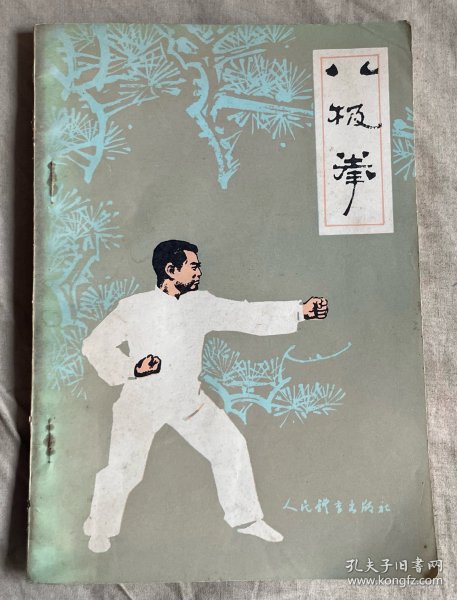 八极拳
人民体育出版社
孔夫子旧书网
www.kongfz.com